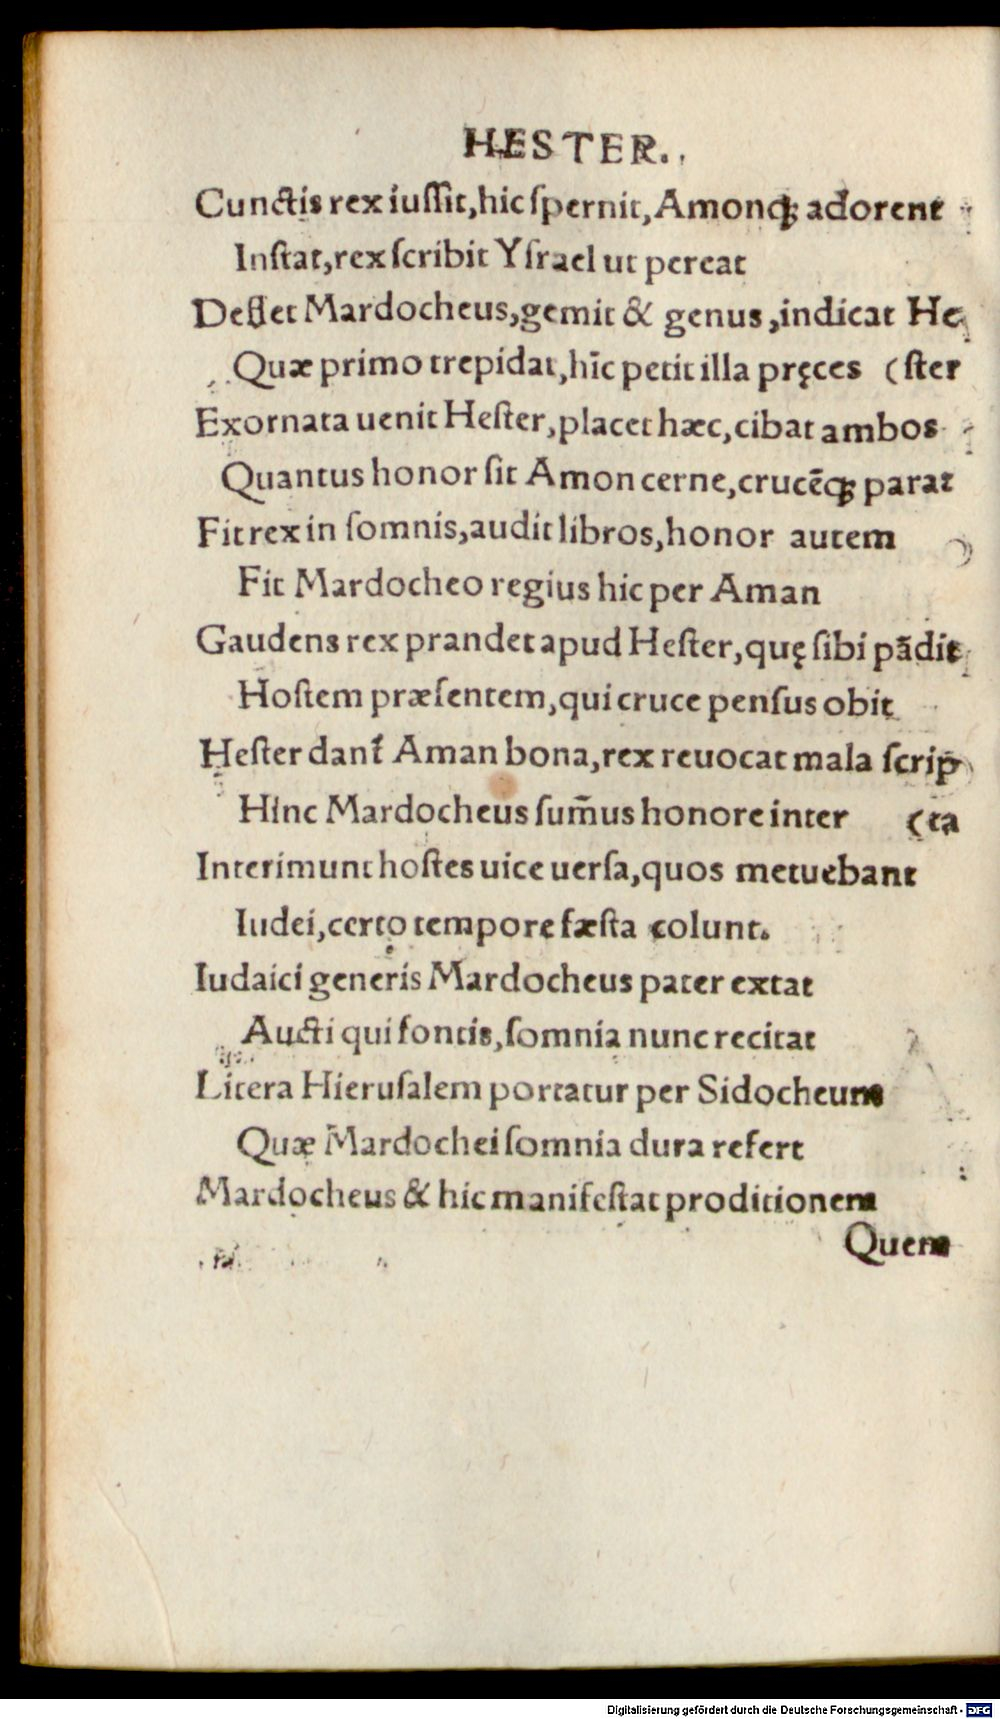 HESTER.
Cunctis rex iuſſit, hic ſpernit, Amonq́ꝫ adorent
Inſtat, rex ſcribit Yſrael ut pereat
Deflet Mardocheus, gemit & genus, indicat He
Quæ primo trepidat, hīc petit illa pręces (ſter
Exornata uenit Heſter, placet hæc, cibat ambos
Quantus honor ſit Amon cerne, crucēqꝫ parat
Fit rex in ſomnis, audit libros, honor autem
Fit Mardocheo regius hic per Aman
Gaudens rex prandet apud Heſter, quę ſibi pādit
Hoſtem præſentem, qui cruce penſus obit
Heſter dant̃ Aman bona, rex reuocat mala ſcrip
Hinc Mardocheus ſum̃us honore inter (ta
Interimunt hoſtes uice uerſa, quos metuebant
Iudei, certo tempore fæſta colunt.
Iudaici generis Mardocheus pater extat
Aucti qui fontis, ſomnia nunc recitat
Litera Hieruſalem portatur per Sidocheum
Quæ Mardochei ſomnia dura refert
Mardocheus & hic manifeſtat proditionem
Quem
Digitalisierung gefördert durch die Deutsche Forschungsgemeinschaft - DFG